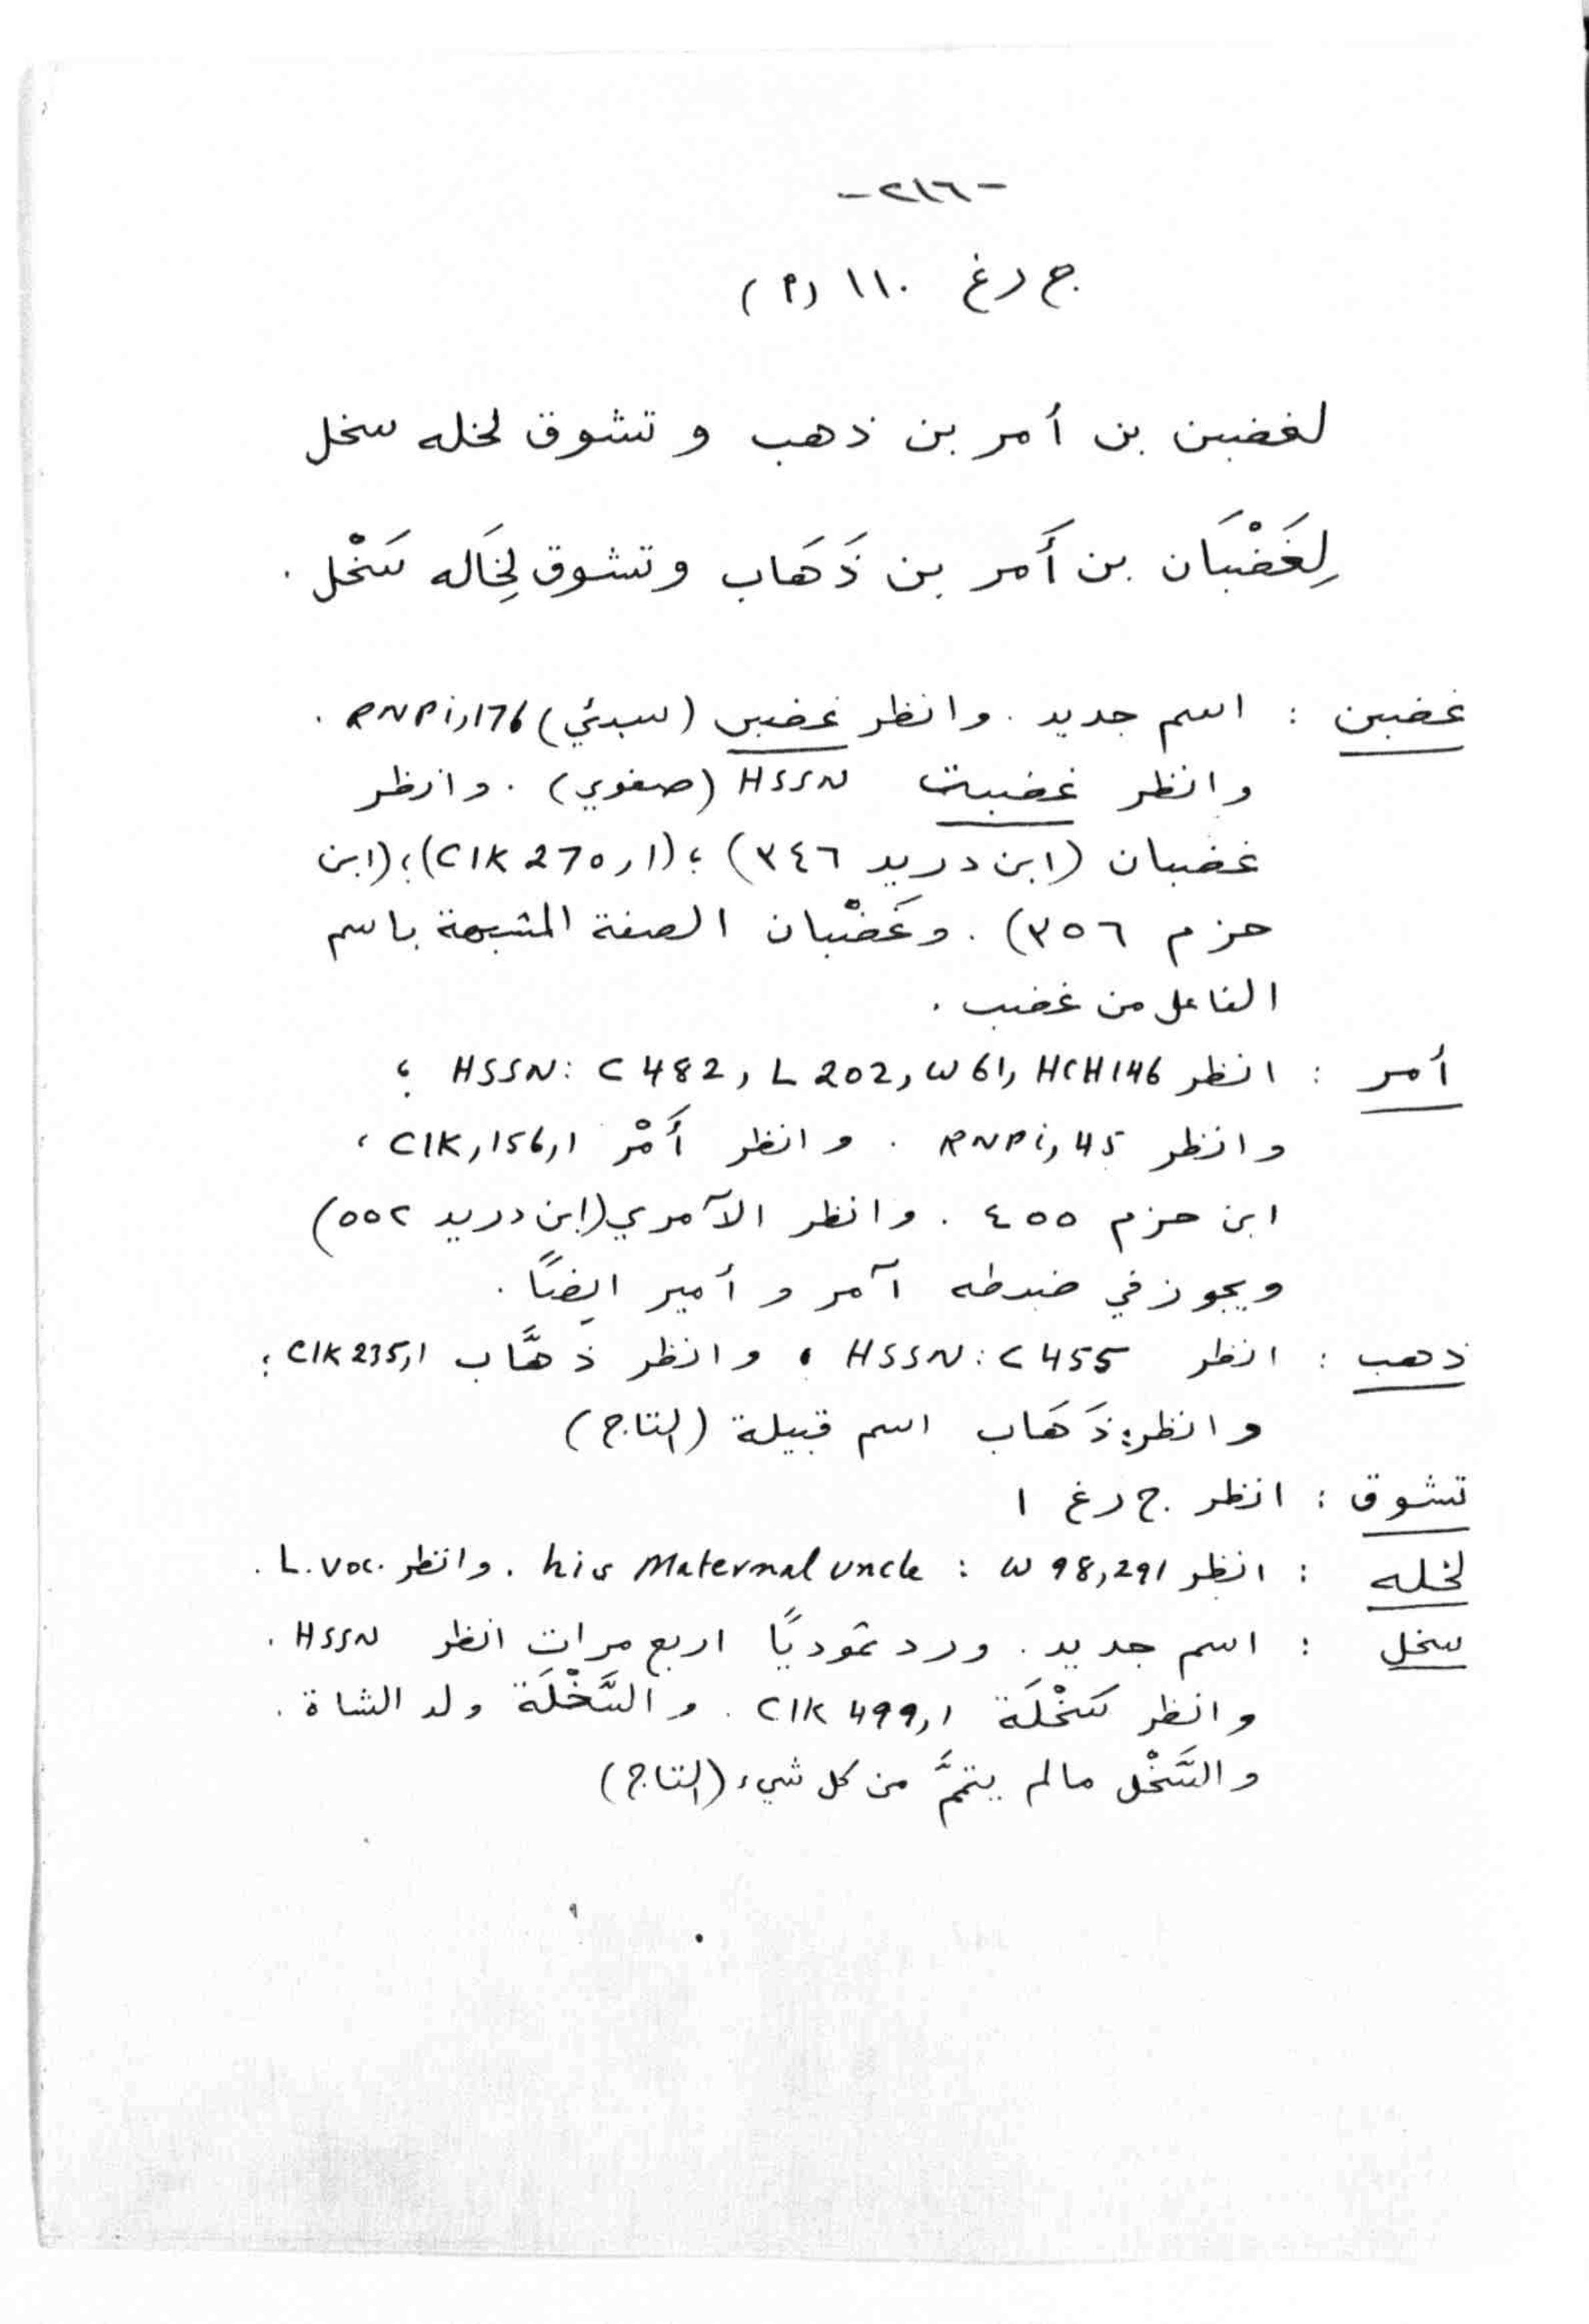 -٢١٦-
ج رغ ١١٠ (٩)
لغضبن بن أمر بن ذهب و تشوق لخله سخل
لِغَضْبَان بن أَمر بن ذَهَاب وتشوق لِخَاله سَخْل .
غضبن : اسم جديد . وانظر غضبن (سبئي) RNPi,176 .
وانظر غضبت HSSN (صفوي) . وانظر
غضبان (ابن دريد ٣٤٦) ؛ (CIK 270,1) ؛ (ابن
حزم ٣٥٦) . وغَضْبان الصفة المشبهة باسم
الفاعل من غضب .
أمر : انظر HSSN: C 482, L 202, W 61, HCH146 ؛
وانظر RNPi,45 . وانظر أَمْر CIK,156,1 ،
ابن حزم ٤٥٥ . وانظر الآمري (ابن دريد ٥٥٢)
ويجوز في ضبطه آمر و أمير ايضًا .
ذهب : انظر HSSN: C 455 ، وانظر ذهَّاب CIK 235,1 ؛
وانظر: ذَهَاب اسم قبيلة (التاج)
تشوق : انظر ج رغ ١
لخله : انظر W 98,291 : his Maternal uncle . وانظر L.Voc. .
سخل : اسم جديد . ورد ثموديًا اربع مرات انظر HSSN .
وانظر سَخْلَة CIK 499,1 . و السَّخْلَة ولد الشاة .
والسَّخْل مالم يتمَّ من كل شيء (التاج)